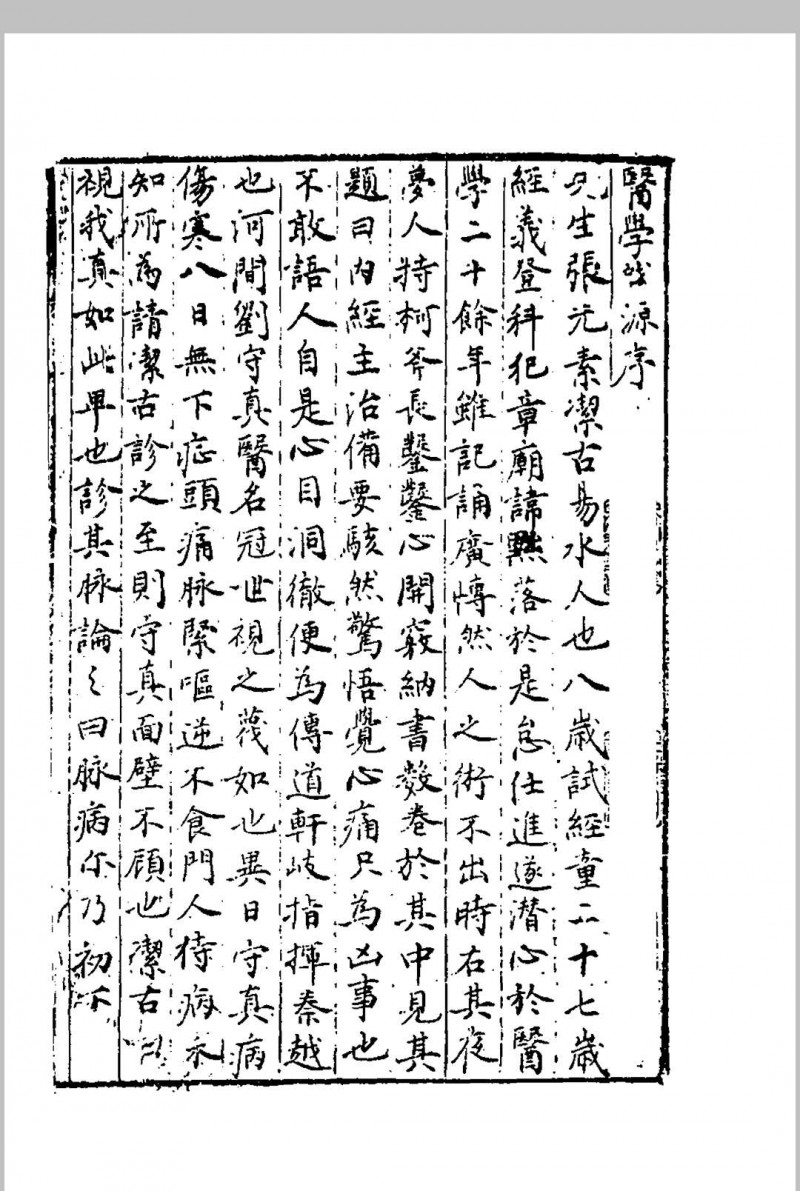 醫學啟源序
先生張元素潔古易水人也八歲試經童二十七歲
經義登科犯章廟諱黜落於是怠仕進遂潛心於醫
學二十餘年雖記誦廣愽然人之術不出時右其夜
夢人持柯斧長鑿鑿心開竅納書數卷於其中見其
題曰內經主治備要駭然驚悟覺心痛只為凶事也
不敢語人自是心目洞徹便為傳道軒岐指揮秦越
也河間劉守真醫名冠世視之蔑如也異日守真病
傷寒八日無下症頭痛脉緊嘔逆不食門人侍病未
知所為請潔古診之至則守真面壁不顧也潔古曰
視我真如此卑也診其脉論之曰脉病尓乃初不